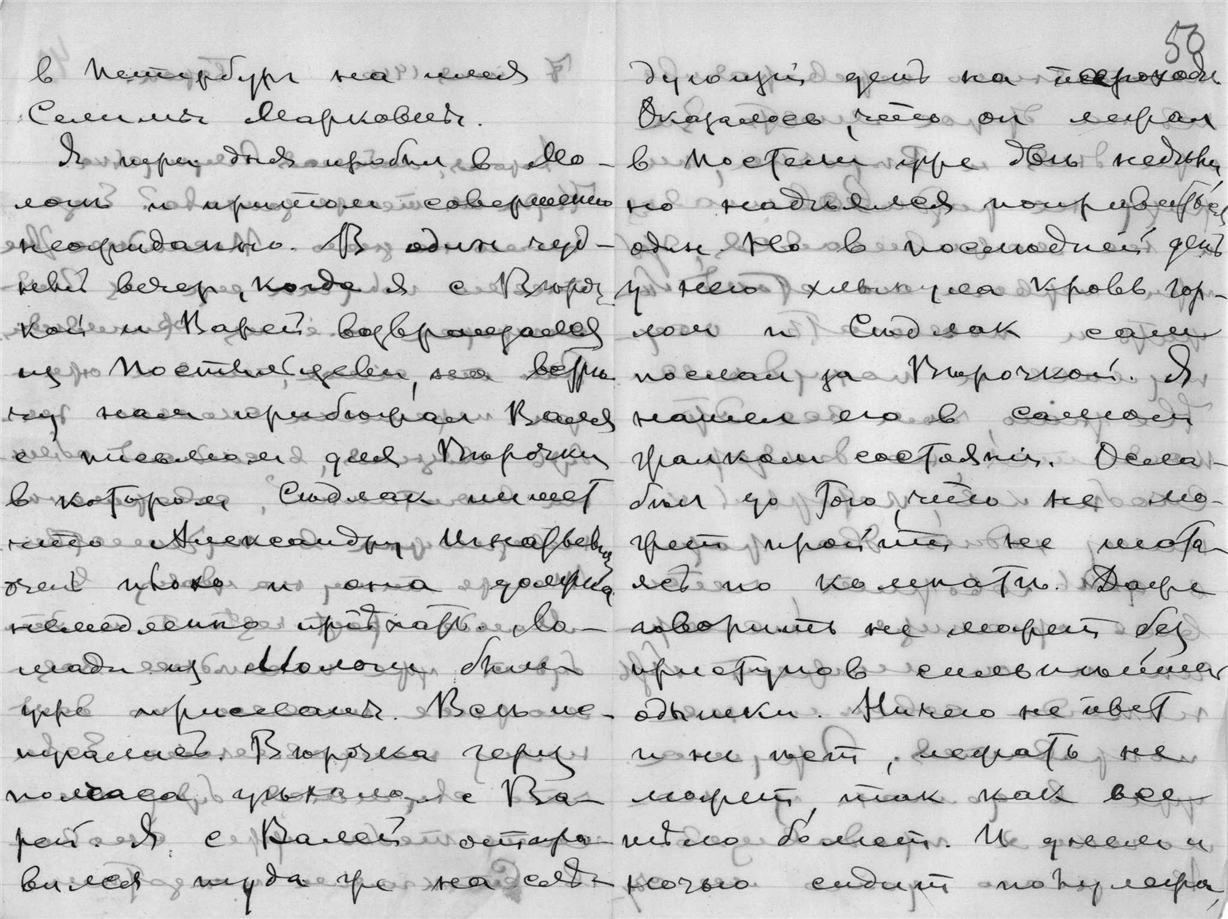 в Петербург на имя
Селимы Марковны.
Я три дня пробыл в Мо-
логе и притом совершенно
неожиданно. В один чуд-
ный вечер, когда я с Вѣроч-
кой и Варей возвращался
из
нам прибежал Валя
с письмом для Вѣрочки
в котором Сидлак пишет
что Александру Игнатьевичу
очень плохо и она должна
немедленно приѣхать. Ло-
шади из Мологи были
уже присланы. Всѣ пе-
Вѣрочка через
полчаса уѣхала с Ва-
рей. Я с Валей отпра-
вился туда же на слѣ-
50
дующий день на пароходе
Оказалось, что он лежал
в постели уже двѣ недѣли
но надѣялся поправиться
один. Но в последний день
у него хлынула кровь гор-
лом и Сидлак сам
послал за Вѣрочкой. Я
нашел его в самом
жалком состоянии. Осла-
бѣл до того, что не мо-
жет пройти не шата-
ясь по комнатѣ. Даже
говорить не может без
приступов сильнѣйшей
одышки. Ничего не ѣст
и не пьет, лежать не
может, так как все
тѣло болит. И днем и
ночью сидит полулежа,